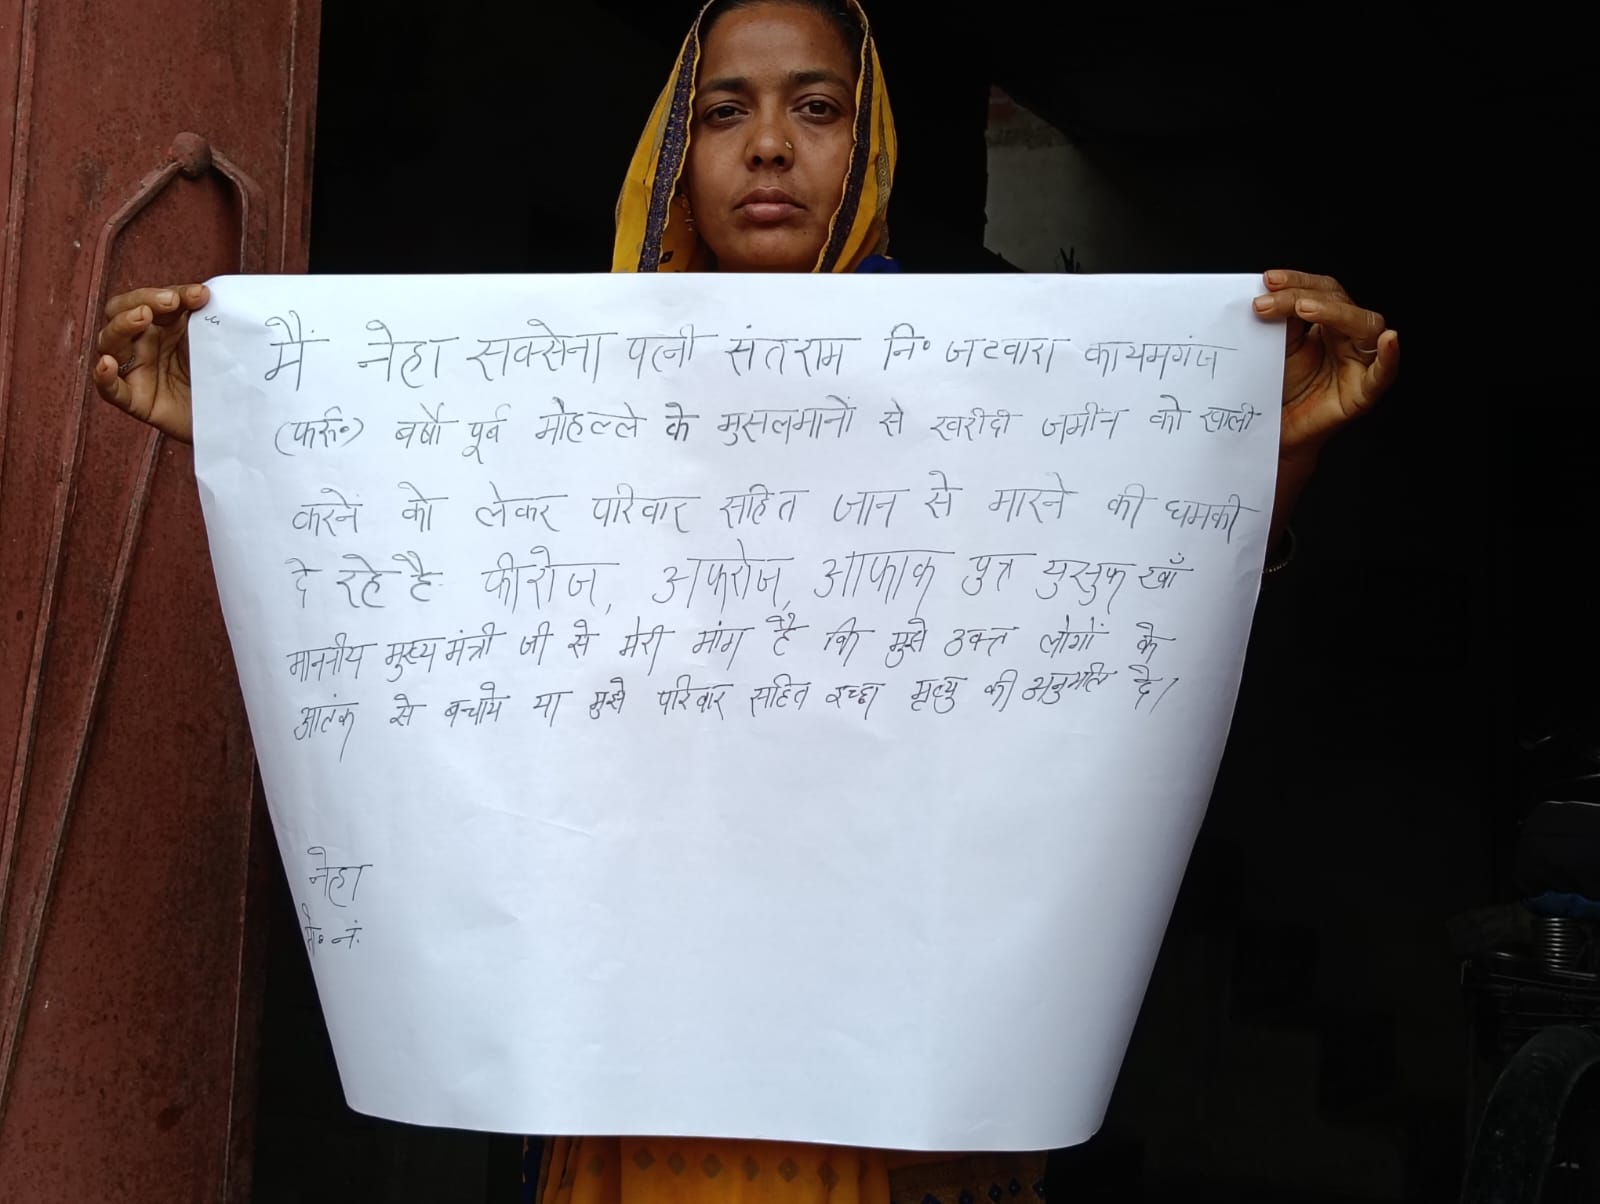 मैं नेहा सक्सेना पत्नी संतराम नि॰ जटवारा कायमगंज
(फर्रु॰) वर्षों पूर्व मोहल्ले के मुसलमानों से खरीदी जमींन को खाली
करनें को लेकर परिवार सहित जान से मारने की धमकी
दे रहे है फीरोज, अफरोज, आफाक पुत्र युसुफ खाँ
माननीय मुख्यमंत्री जी से मेरी मांग है कि मुझे उक्त लोगों के
आतंक से बचाये या मुझे परिवार सहित इच्छा मृत्यु की अनुमति दे।
नेहा
मो॰ नं.